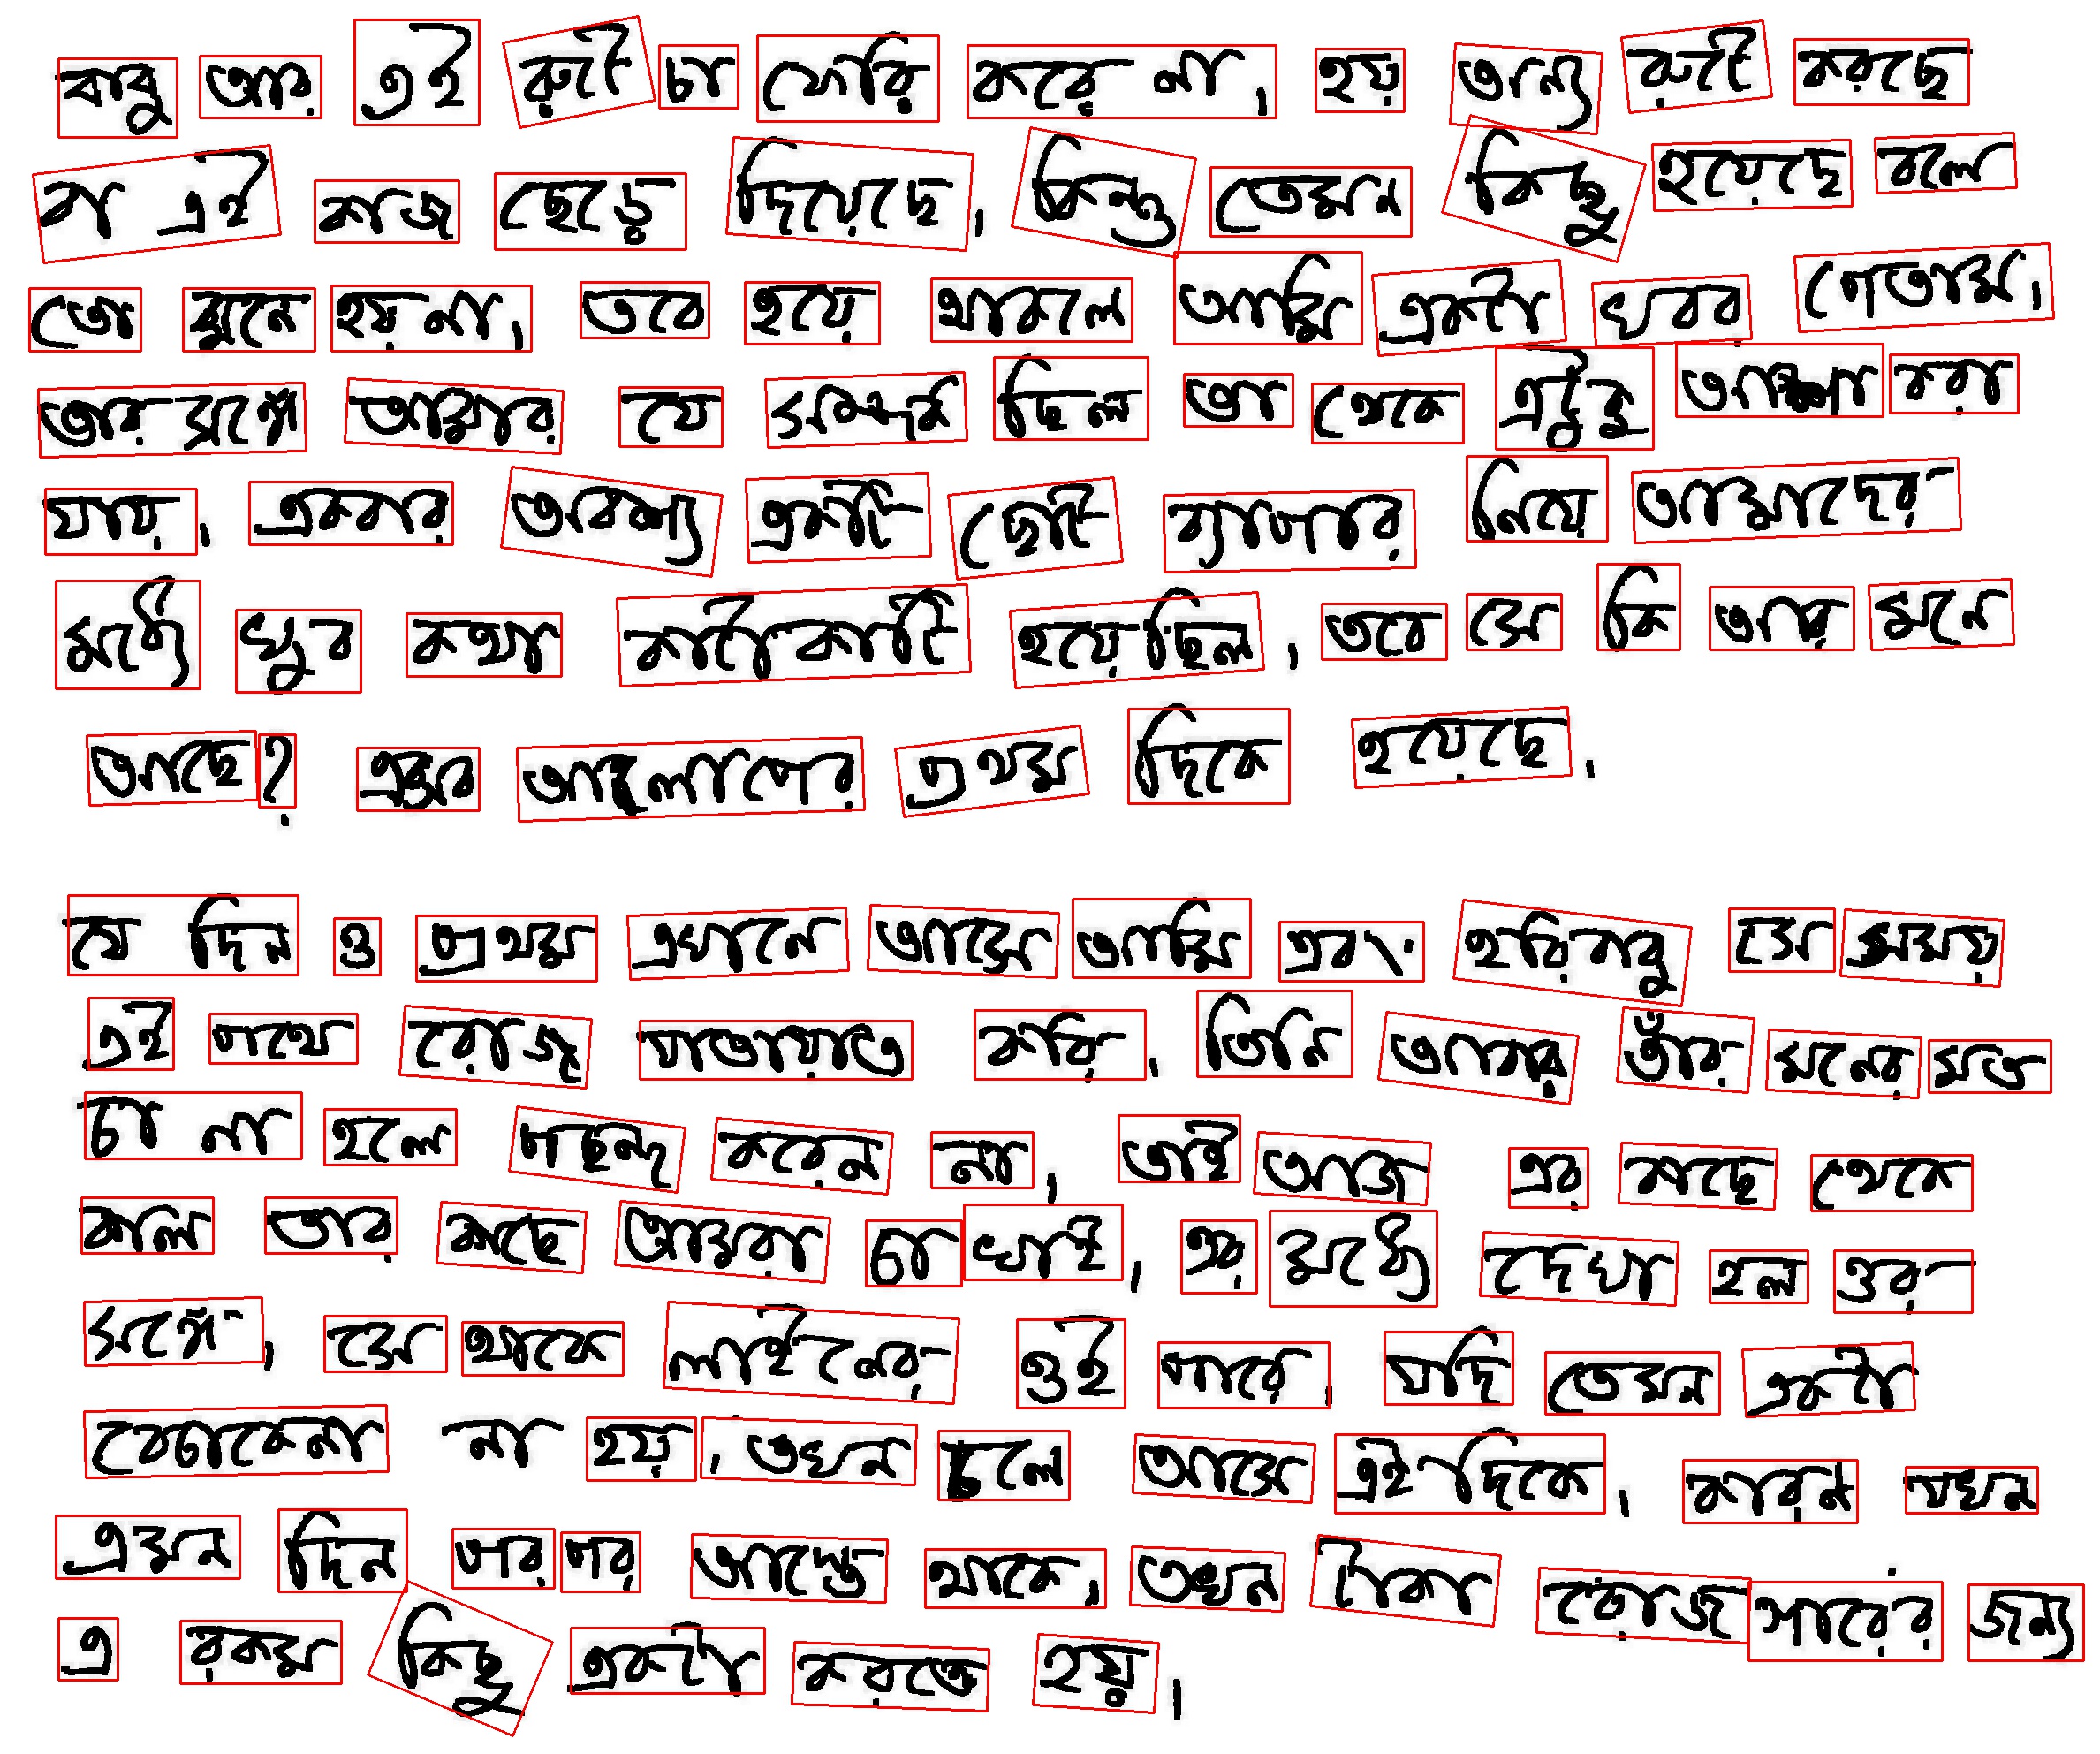 বাবু আর এই রুটে চা ফেরি করে না, হয় অন্য রুটে করছে
বা এই কাজ ছেড়ে দিয়েছে, কিন্তু তেমন কিছু হয়েছে বলে
তো মনে হয় না, তবে হয়ে থাকলে আমি একটা খবর পেতাম,
তার সঙ্গে আমার যে সম্পর্ক ছিল তা থেকে এটুকু আশা করা
যায়, একবার অবশ্য একটি ছোট ব্যাপার নিয়ে আমাদের
মধ্যে খুব কথা কাটাকাটি হয়েছিল, তবে সে কি তার মনে
আছে? এবার আলাপের প্রথম দিকে হয়েছে,
যে দিন ও প্রথম এখানে আসে আমি এবং হরিবাবু সে সময়
এই পথে রোজ যাতায়াত করি, তিনি আবার তাঁর মনের মত
চা না হলে পছন্দ করেন না, তাই আজ এর কাছে থেকে
কাল তার কাছে আমরা চা খাই, এর মধ্যে দেখা হল ওর
সঙ্গে, সে থাকে লাইনের ওই পারে, যদি তেমন একটা
বেচাকেনা না হয়, তখন চলে আসে এই দিকে, কারন যখন
এমন দিন পর পর আস্তে থাকে, তখন টাকা রোজগারের জন্য
এ রকম কিছু একটা করতে হয়,